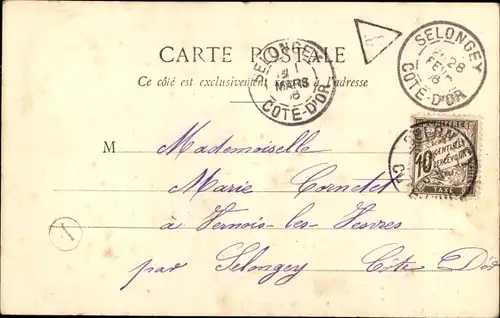 CARTE POSTALE
Ce côté est exclusivement l'adresse
SELONGEY
1
MARS
CÔTE-D'OR
SELONGEY
28
FEVR
CÔTE-D'OR
M Mademoiselle
Marie Cornetet
à Vernois-les-Vesvres
par Selongey Côte D'or
10
CENTIMES
A PERCEVOIR
TAXE
1